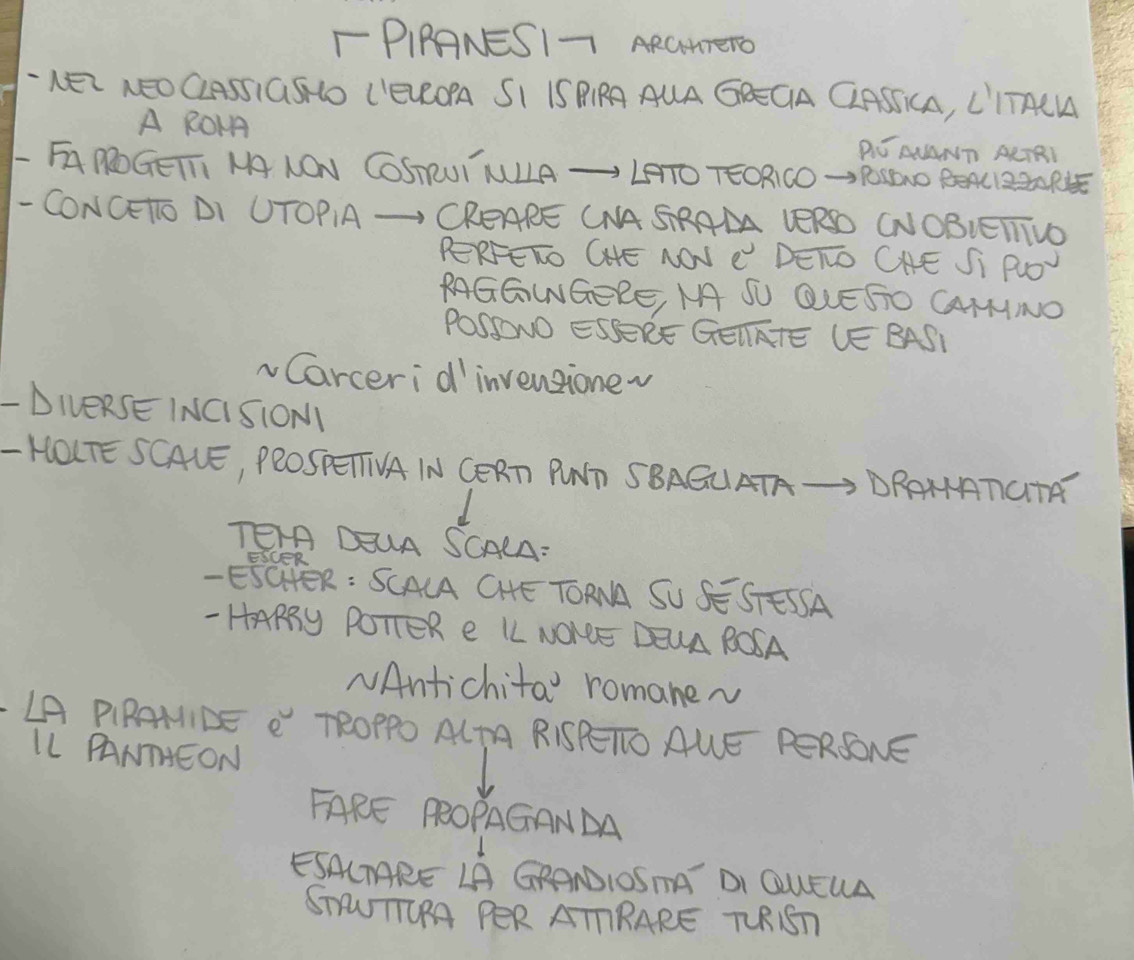 PIRANESI ARCHITETO
- NEL NEOCLASSICISMO L'EUROPA SI ISPIRA ALLA GRECIA CLASSICA, L'ITALIA
A ROMA
- FA PROGETTI MA NON COSTRUÍ NULLA → LATO TEORICO → PIÚ AVANTI ALTRI
POSSONO REALIZZARLE
- CONCETTO DI UTOPIA → CREARE UNA STRADA VERSO UN OBIETTIVO
PERFETTO CHE NON È DETTO CHE SI PUÒ
RAGGIUNGERE, MA SU QUESTO CAMMINO
POSSONO ESSERE GETTATE LE BASI
~Carceri d'invenzione~
- DIVERSE INCISIONI
- MOLTE SCALE, PROSPETTIVA IN CERTI PUNTI SBAGLIATA → DRAMMATICITÁ
↓
TEMA DELLA SCALA:
ESCER
- ESCHER: SCALA CHE TORNA SU SÉ STESSA
- HARRY POTTER e IL NOME DELLA ROSA
~Antichità romane~
- LA PIRAMIDE è TROPPO ALTA RISPETTO ALLE PERSONE
IL PANTHEON
↓
FARE PROPAGANDA
↓
ESALTARE LA GRANDIOSITÁ DI QUELLA
STRUTTURA PER ATTIRARE TURISTI